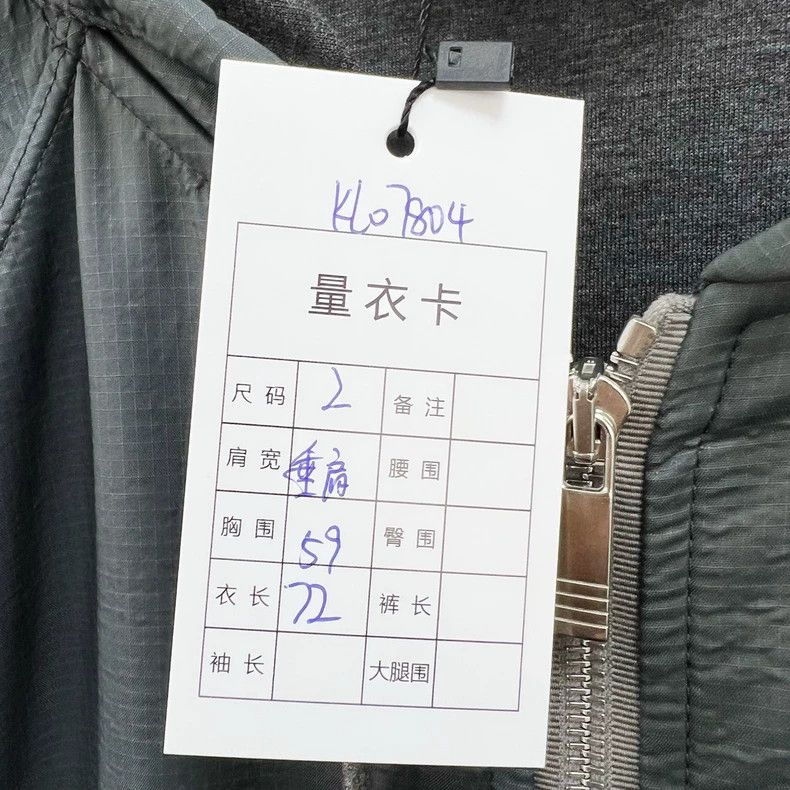 KL07804
量衣卡
尺码 2 备注
肩宽 垂肩 腰围
胸围 59 臀围
衣长 72 裤长
袖长 大腿围